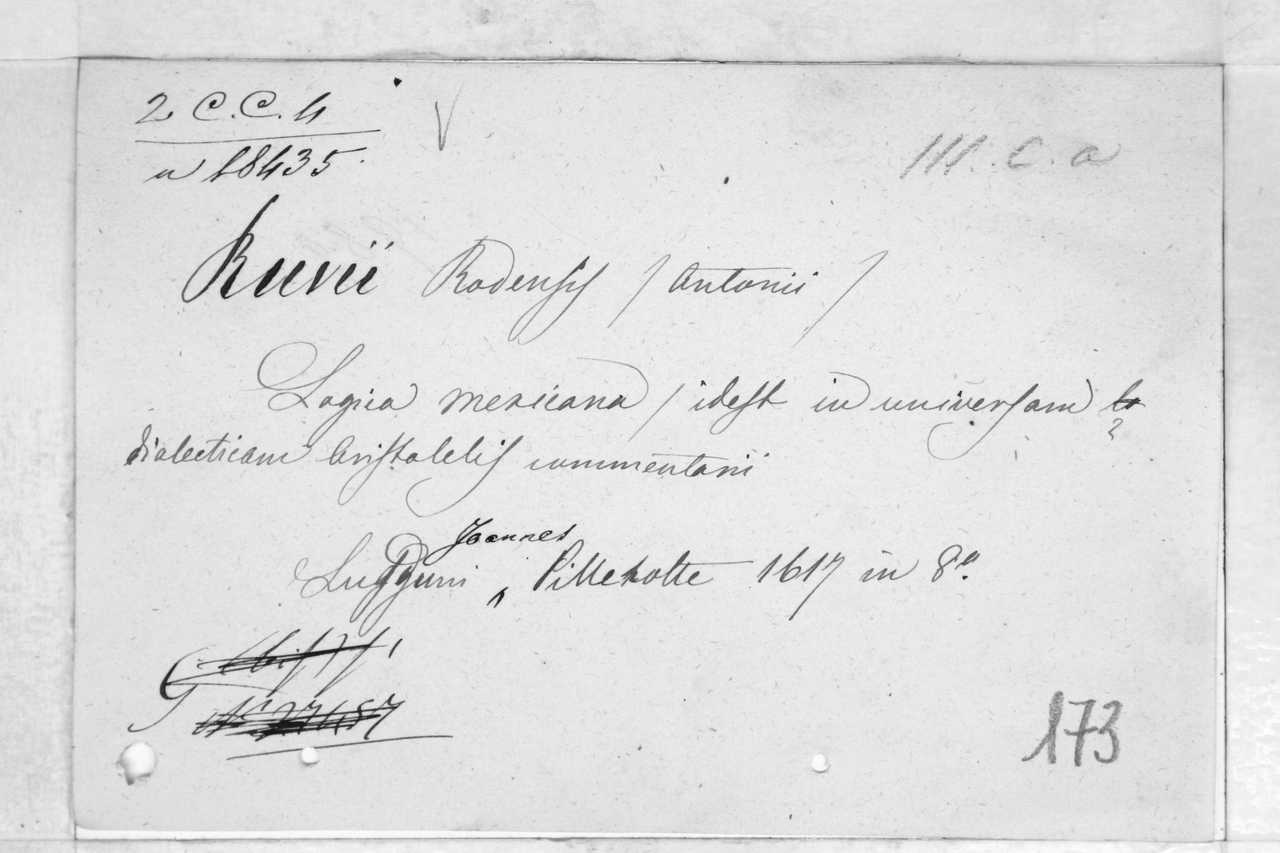 2 C.C. 4
n 18435
III. C. a
Ruvii Rodensis / Antonii /
Logica mexicana / idest in universam
dialecticam Aristotelis commentarii
Joannes
Lugduni Pillehotte 1617 in 8°
173